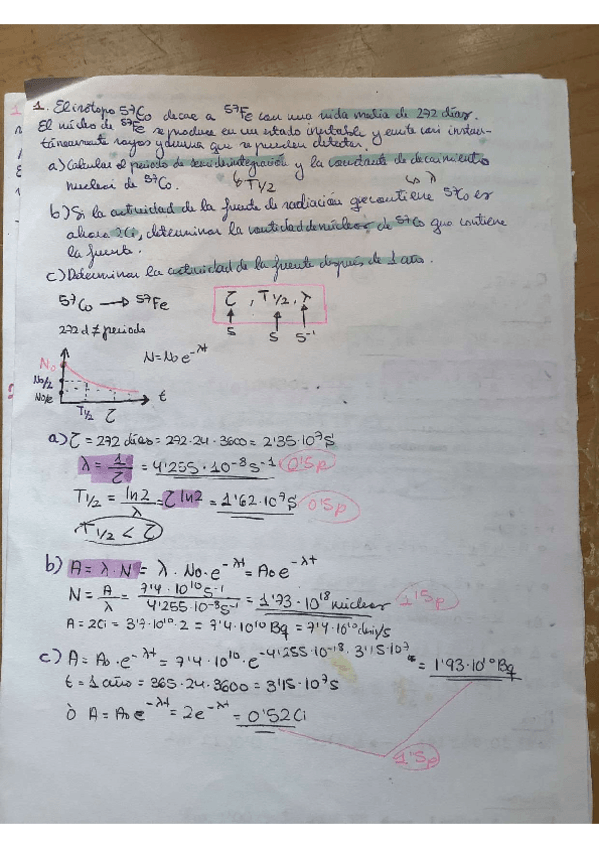 1. El isótopo 57Co decae a 57Fe con una vida media de 272 días.
El núcleo de 57Fe se produce en un estado inestable y emite casi instan-
táneamente rayos gamma que se pueden detectar.
a) Calcular el periodo de semidesintegración y la constante de decaimiento
↳ T1/2 ↳ λ
nuclear de 57Co.
b) Si la actividad de la fuente de radiación que contiene 57Co es
ahora 2Ci, determinar la cantidad de núcleos de 57Co que contiene
la fuente.
c) Determinar la actividad de la fuente después de 1 año.
57Co → 57Fe
τ, T1/2, λ
272 d ≠ periodo
s s s⁻¹
N = N₀e^-λt
N₀
N₀/2
N₀/e
T1/2 τ t
a) τ = 272 días = 272·24·3600 = 2'35·10⁷s
λ = 1/τ = 4'255·10⁻⁸s⁻¹ 0'5p
T1/2 = ln2/λ = τ ln2 = 1'62·10⁷s 0'5p
T1/2 < τ
b) A = λ·N = λ·N₀·e^-λt = A₀e^-λt
N = A/λ = 7'4·10¹⁰s⁻¹/4'255·10⁻⁸s⁻¹ = 1'73·10¹⁸ núcleos 1'5p
A = 2Ci = 3'7·10¹⁰·2 = 7'4·10¹⁰Bq = 7'4·10¹⁰ desin/s
c) A = A₀·e^-λt = 7'4·10¹⁰·e^-4'255·10⁻¹⁸·3'15·10⁷ = 1'93·10¹⁰Bq
t = 1 año = 365·24·3600 = 3'15·10⁷s
ò A = A₀e^-λt = 2e^-λt = 0'52Ci
1'5p